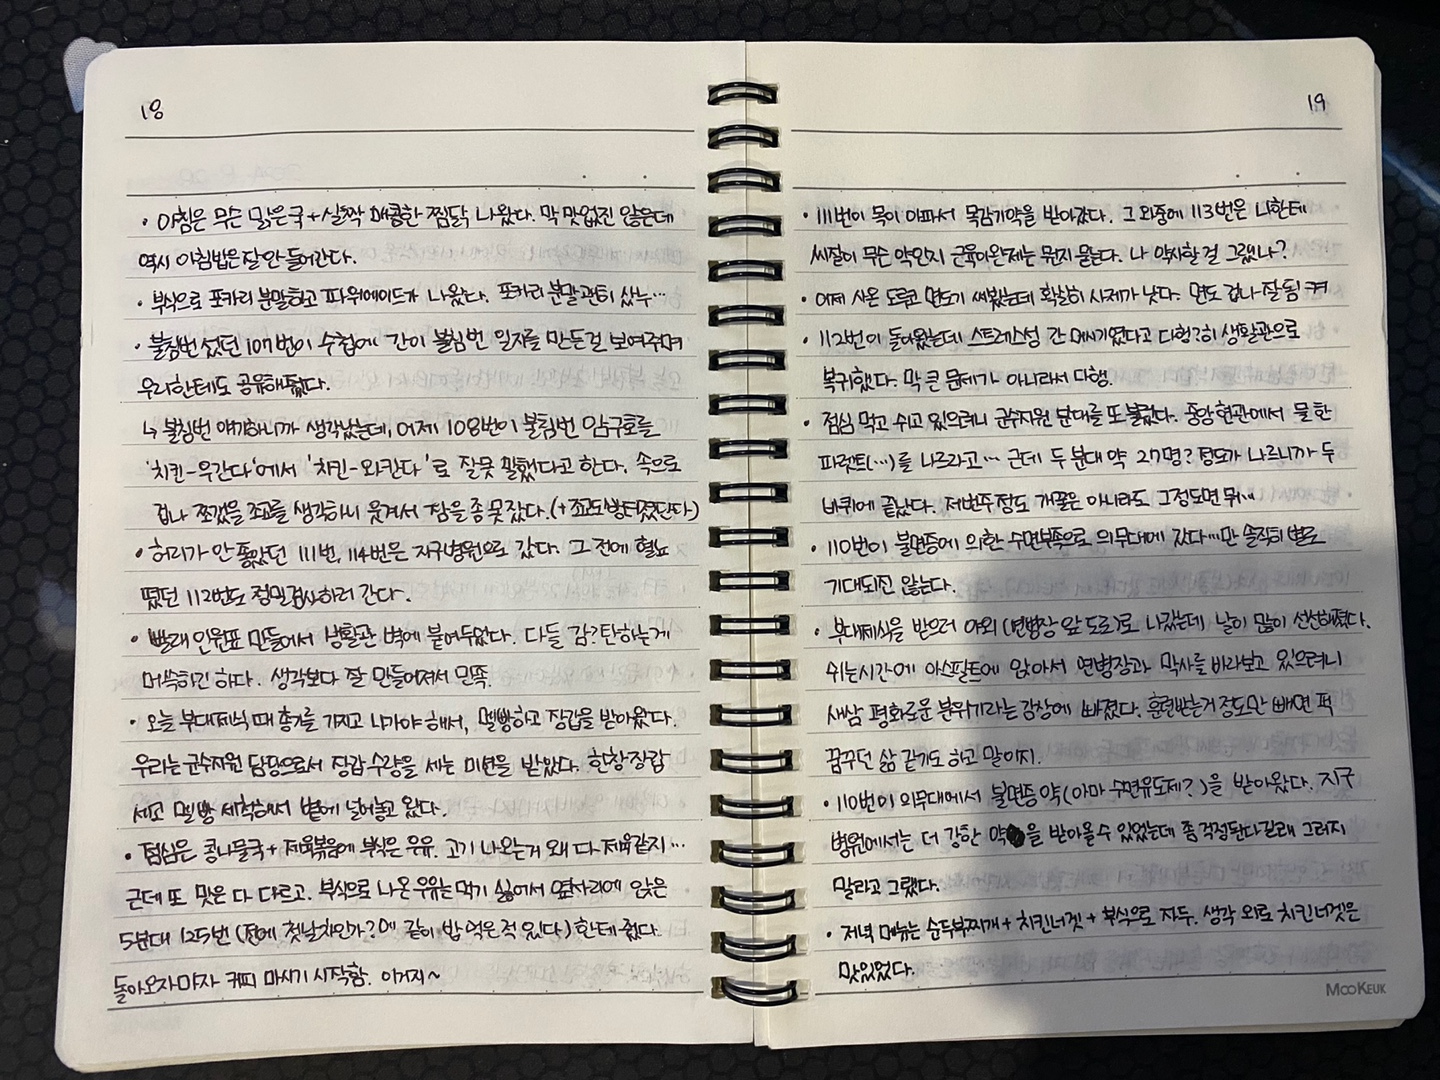 18
• 아침은 무슨 맑은국 + 실짝 매콤한 찜닭 나왔다. 막 맛없진 않은데
역시 아침밥은 잘 안 들어간다.
• 부식으로 포카리 분말하고 파워에이드가 나왔다. 포카리 분말 괜히 샀누…
• 불침번 섰던 107번이 수첩에 간이 불침번 일자를 만든걸 보여주며
우리한테도 공유해줬다.
↳ 불침번 얘기하니까 생각났는데, 어제 108번이 불침번 암구호를
'치킨-우간다'에서 '치킨-와칸다'로 잘못 말했다고 한다. 속으로
겁나 쪼갰을 조교를 생각하니 웃겨서 잠을 좀 못 잤다. (+ 조교도 빵터졌단다)
• 허리가 안 좋았던 111번, 114번은 지구병원으로 갔다. 그 전에 혈뇨
떴던 112번도 정밀검사하러 간다.
• 빨래 인원표 만들어서 생활관 벽에 붙여두었다. 다들 감?탄하는게
머쓱하긴 하다. 생각보다 잘 만들어져서 만족.
• 오늘 부대제식 때 총기를 가지고 나가야 해서, 멜빵하고 장갑을 받아왔다.
우리는 군수지원 담당으로서 장갑 수량을 세는 미션을 받았다. 한창 장갑
세고 멜빵 세척해서 볕에 널어놓고 왔다.
• 점심은 콩나물국 + 제육볶음에 부식은 우유. 고기 나오는거 왜 다 제육같지…
근데 또 맛은 다 다르고. 부식으로 나온 우유는 먹기 싫어서 옆자리에 앉은
5분대 125번 (전에 첫날치인가?에 같이 밥 먹은 적 있다)한테 줬다.
돌아오자마자 커피 마시기 시작함. 이거지~
19
• 111번이 목이 아파서 목감기약을 받아갔다. 그 와중에 113번은 나한테
씨잘이 무슨 약인지 근육이완제는 뭔지 묻는다. 나 약사할 걸 그랬나?
• 어제 사온 도루코 면도기 써봤는데 확실히 사제가 낫다. 면도 겁나 잘 됨 ㅋㅋ
• 112번이 돌아왔는데 스트레스성 간 머시기였다고 다행?히 생활관으로
복귀했다. 막 큰 문제가 아니라서 다행.
• 점심 먹고 쉬고 있으려니 군수지원 분대를 또 불렀다. 중앙현관에서 물 한
파렛트(…)를 나르라고… 근데 두 분대 약 27명? 정도가 나르니까 두
바퀴에 끝났다. 저번주 정도 개꿀은 아니라도 그정도면 뭐…
• 110번이 불면증에 의한 수면부족으로 의무대에 갔다…만 솔직히 별로
기대되진 않는다.
• 부대제식을 받으러 야외 (연병장 앞 도로)로 나갔는데 날이 많이 선선해졌다.
쉬는시간에 아스팔트에 앉아서 연병장과 막사를 바라보고 있으려니
새삼 평화로운 분위기라는 감상에 빠졌다. 훈련받는거 정도만 빼면 퍽
꿈꾸던 삶 같기도 하고 말이지.
• 110번이 의무대에서 불면증 약(아마 수면유도제?)을 받아왔다. 지구
병원에서는 더 강한 약을 받아올 수 있었는데 좀 걱정된다길래 그러지
말라고 그랬다.
• 저녁 메뉴는 순두부찌개 + 치킨너겟 + 부식으로 자두. 생각 외로 치킨너겟은
맛있었다.
MOOKEUK